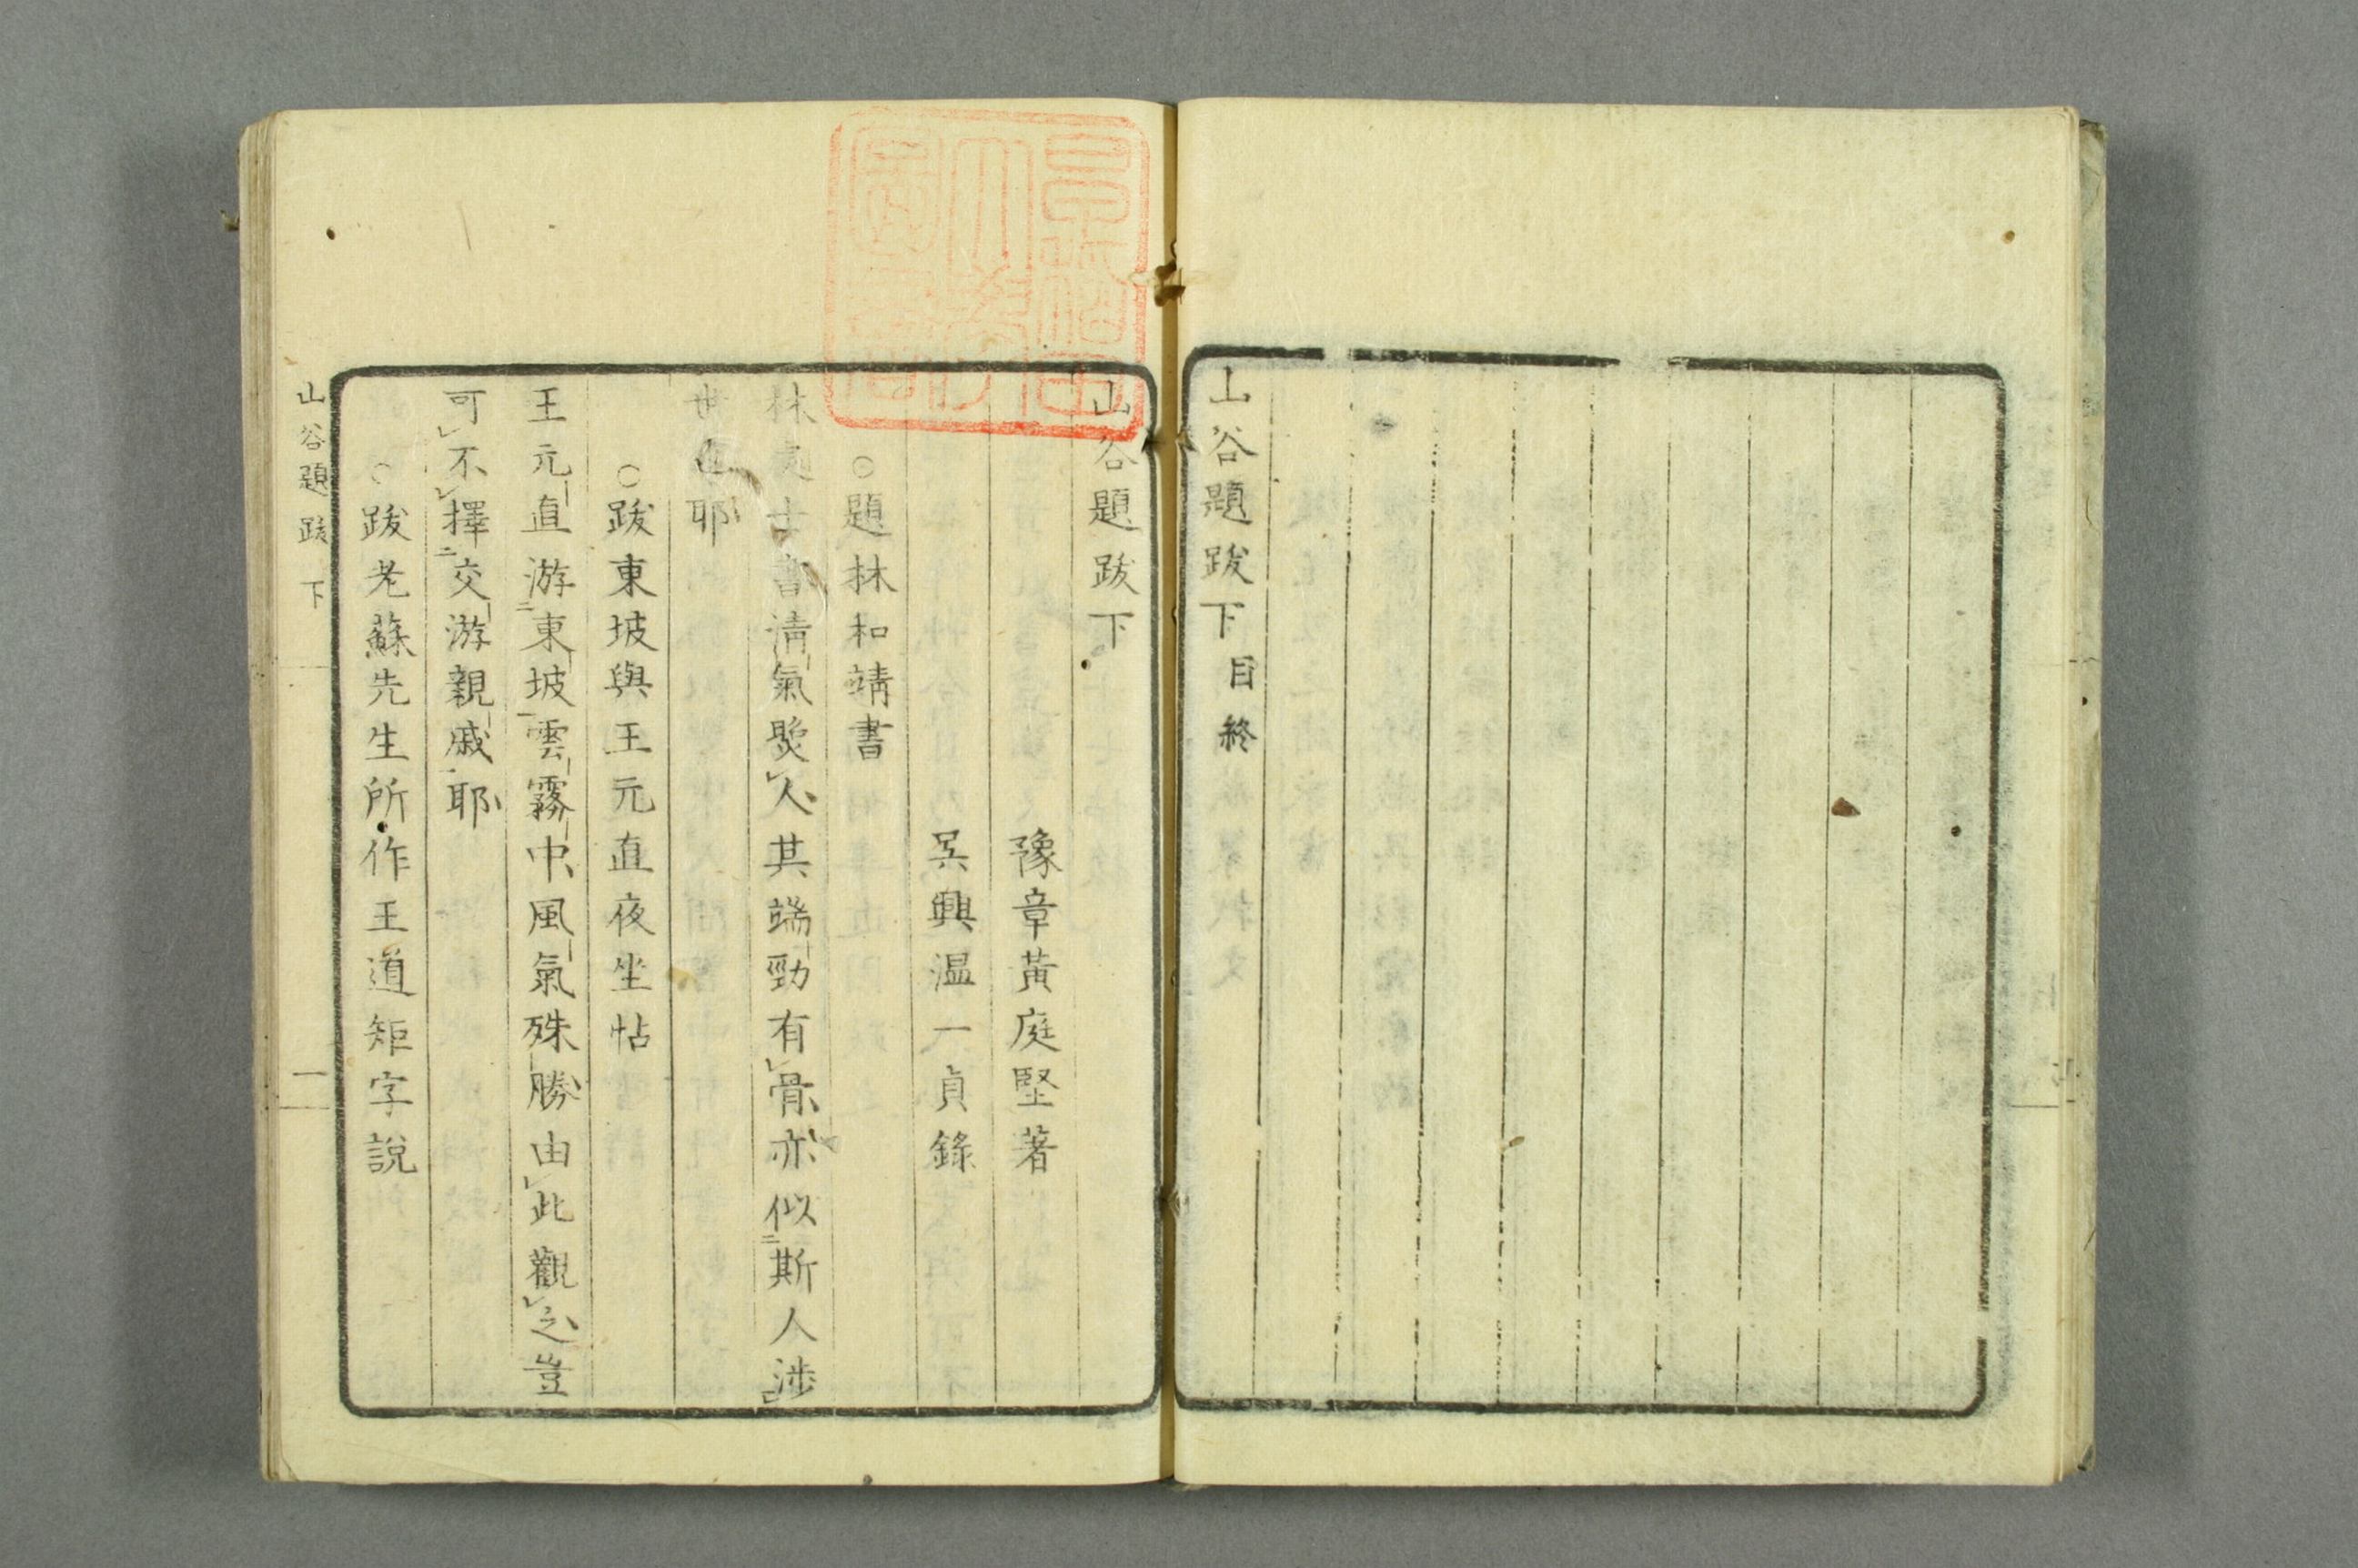 山谷題跋下目終
山谷題跋下
豫章黃庭堅著
吴興溫一貞錄
○題林和靖書
林處士書清氣熨人其端勁有骨亦似斯人涉
世也耶
○跋東坡與王元直夜坐帖
王元直游東坡雲霧中風氣殊勝由此觀之豈
可不擇交游親戚耶
○跋老蘇先生所作王道矩字說
山谷題跋 下 一